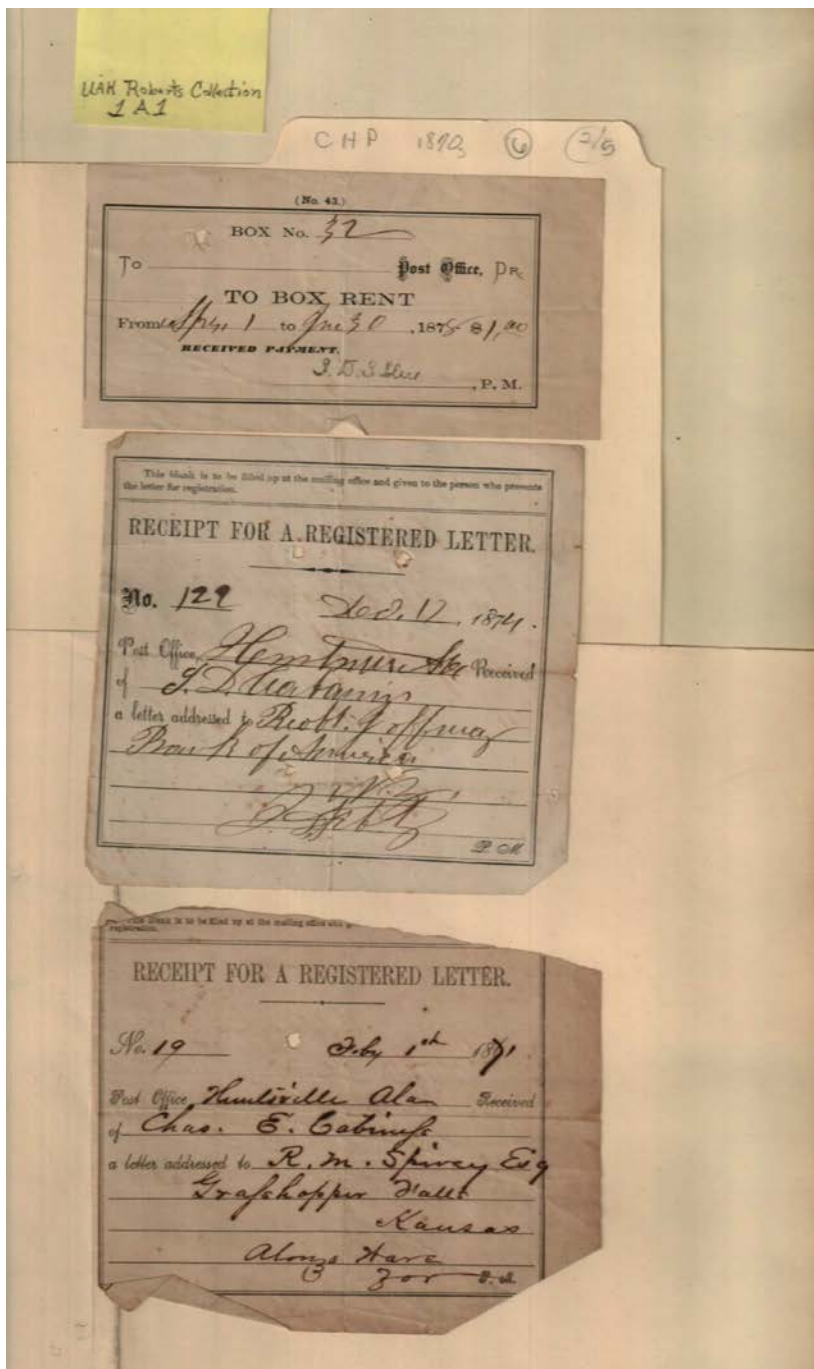 UAH Roberts Collection
1A1
CHP 1870s 6 2/5
(No. 43.)
BOX No. 32
To Post Office, DR.
TO BOX RENT
From Apr 1 to Jne 30, 187 $1,00
RECEIVED PAYMENT.
, P. M.
This blank is to be filled up at the mailing office and given to the person who presents
the letter for registration.
RECEIPT FOR A REGISTERED LETTER.
No. 129 12, 1874.
Post Office, Received
of S. D. Cabaniss
a letter addressed to Robt.
Bank of America
P. M
This blank is to be filled up at the mailing office and
registration.
RECEIPT FOR A REGISTERED LETTER.
No. 19 Feby 1th 1871
Post Office Huntsville Ala Received
of Chas. E. Cabiness
a letter addressed to R. M. Spivey Esq
Grasshopper Falls
Kansas
Alonzo Hare
for P. M.